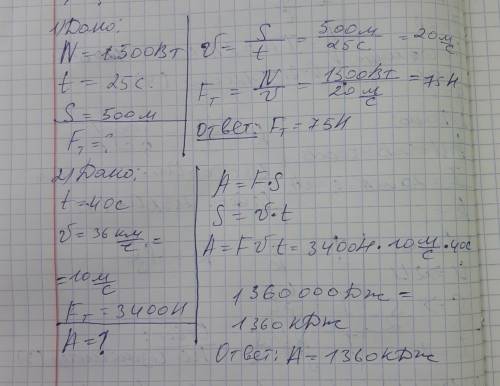 1) Дано:
N = 1500Вт
t = 25с.
S = 500м
Fт = ?
υ = S/t = 500м/25с = 20 м/с
Fт = N/υ = 1500Вт/20 м/с = 75Н
Ответ: Fт = 75Н
2) Дано:
t = 40с
υ = 36 км/ч =
= 10 м/с
Fт = 3400Н
A = ?
A = F·S
S = υ·t
A = Fυt = 3400Н · 10 м/с · 40с
1360000Дж =
1360кДж
Ответ: A = 1360кДж